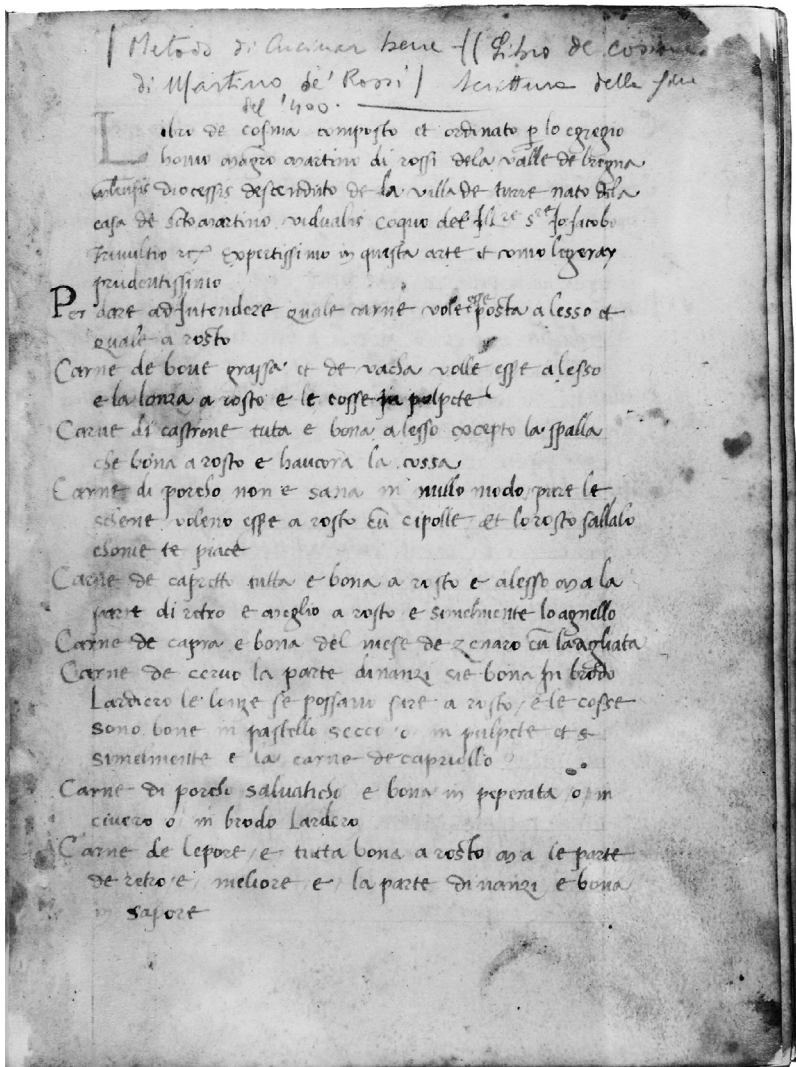 | Metodo di Cucinar bene - (( Libro de cosina
di Martino de' Rossi | scrittura della fine
del '400.
Libro de cosina composto et ordinato p lo egregio
homo magro Martino di rossi dela valle de bregna
diocessis descenduto de la villa de turre nato dela
casa de Scto martino vidualis coquo del Ill.re S.re Jo Jacobo
Trivultio rc. expertissimo in questa arte et como legeray
prudentissimo
Per dare ad Intendere quale carne vole esse posta a lesso et
quale a rosto
Carne de bove grassa et de vacha volle esse a lesso
e la lonza a rosto e le cosse in polpete
Carne di castrone tuta e bona a lesso excepto la spalla
che bona a rosto e hancora la cossa
Carne di porcho non e sana in nullo modo, pure le
schene voleno esse a rosto cu cipolle et lo rosto sallalo
chome te piace
Carne de capretto tutta e bona a rosto e alesso ma la
parte di retro e meglio a rosto e simelmente lo agnello
Carne de capra e bona del mese de zenaro cu la agliata
Carne de cervo la parte dinanzi sie bona In brodo
Lardiero le lonze se possano fare a rosto / e le cosse
sono bone in pastello secco o in pulpete et
simelmente e la carne de capriollo
Carne di porcho salvaticho e bona in peperata o in
civero o in brodo Lardero
Carne de lepore / e tutta bona a rosto ma le parte
de retro e meliore e la parte dinanzi e bona
in sapore